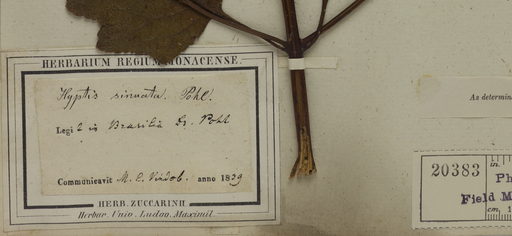 HERBARIUM REGIUM MONACENSE.
Hyptis sinuata. Pohl.
Legit in Brasilia Dr. Pohl
Communicavit M. C. Vindob. anno 1839
HERB. ZUCCARINII
Herbar. Univ. Ludov. Maximil.
As determin
20383
in.
Ph
Field M
cm. 1